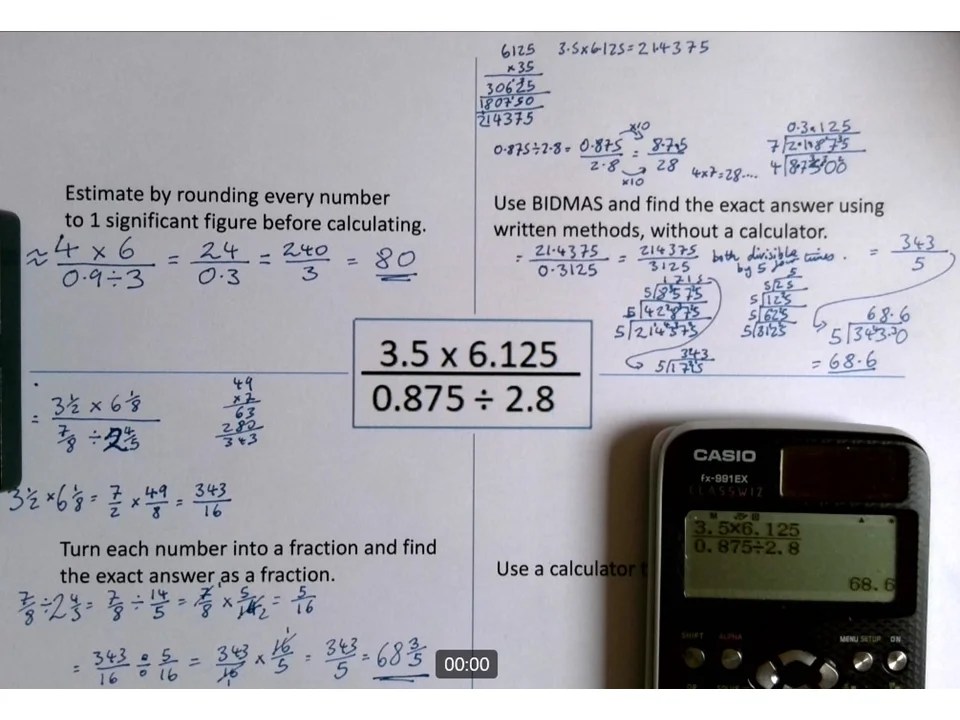 6125
×35
30625
180750
214375
3.5×6.125=21.4375
0.875÷2.8= 0.875/2.8 = 8.75/28
×10
×10
4×7=28....
0.3125
7 2.1875
4 8.7500
Estimate by rounding every number
to 1 significant figure before calculating.
≈ 4 × 6 / 0.9÷3 = 24/0.3 = 240/3 = 80
Use BIDMAS and find the exact answer using
written methods, without a calculator.
= 21.4375/0.3125 = 214375/3125 both divisible by 5 four times. = 343/5
1715
5 8575
5 42875
5 214375
343
5 1715
5
5 25
5 125
5 625
5 3125
68.6
5 343.0
= 68.6
3.5 x 6.125
0.875 ÷ 2.8
= 3½ × 6⅛ / ⅞ ÷ 2⅘
49
×7
63
280
343
3½ × 6⅛ = 7/2 × 49/8 = 343/16
Turn each number into a fraction and find
the exact answer as a fraction.
⅞ ÷ 2⅘ = 7/8 ÷ 14/5 = 7/8 × 5/14 = 5/16
= 343/16 ÷ 5/16 = 343/16 × 16/5 = 343/5 = 68⅗
Use a calculator
CASIO
fx-991EX
CLASSWIZ
3.5×6.125
0.875÷2.8
68.6
SHIFT ALPHA MENU SETUP ON
00:00